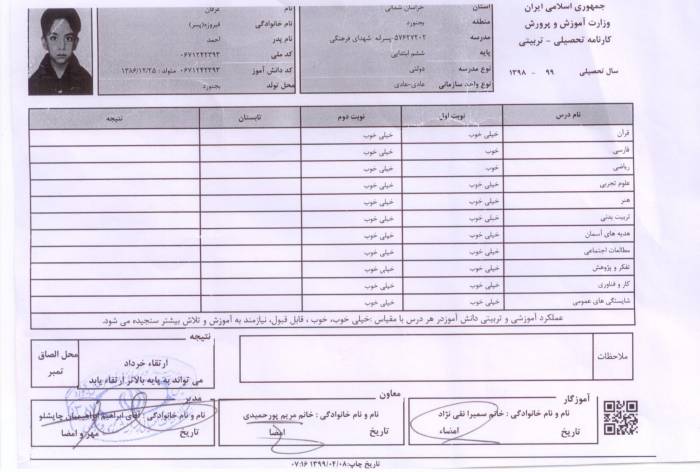 جمهوری اسلامی ایران
وزارت آموزش و پرورش
کارنامه تحصیلی - تربیتی
سال تحصیلی ۹۹ - ۱۳۹۸
استان خراسان شمالی
منطقه بجنورد
مدرسه ۵۷۶۲۷۲۰۲-پسرانه شهدای فرهنگی
پایه ششم ابتدایی
نوع مدرسه دولتی
نوع واحد سازمانی عادی-عادی
نام عرفان
نام خانوادگی فیروزه(پسر)
نام پدر احمد
کد ملی ۰۶۷۱۲۴۲۳۹۳
کد دانش آموز ۰۶۷۱۲۴۲۳۹۳ متولد: ۱۳۸۶/۱۲/۲۵
محل تولد بجنورد
نام درس نوبت اول نوبت دوم تابستان نتیجه
قرآن خیلی خوب خیلی خوب
فارسی خوب خیلی خوب
ریاضی خوب خیلی خوب
علوم تجربی خیلی خوب خیلی خوب
هنر خیلی خوب خیلی خوب
تربیت بدنی خیلی خوب خیلی خوب
هدیه های آسمان خیلی خوب خیلی خوب
مطالعات اجتماعی خیلی خوب خیلی خوب
تفکر و پژوهش خیلی خوب خیلی خوب
کار و فناوری خیلی خوب خیلی خوب
شایستگی های عمومی خیلی خوب خیلی خوب
عملکرد آموزشی و تربیتی دانش آموزدر هر درس با مقیاس :خیلی خوب، خوب ، قابل قبول، نیازمند به آموزش و تلاش بیشتر سنجیده می شود.
ملاحظات
نتیجه
ارتقاء خرداد
می تواند به پایه بالاتر ارتقاء یابد
محل الصاق
تمبر
آموزگار
نام و نام خانوادگی : خانم سمیرا نقی نژاد
تاریخ امضاء
معاون
نام و نام خانوادگی : خانم مریم پورحمیدی
تاریخ امضا
مدیر
نام و نام خانوادگی : آقای ابراهیم چاپشلو
تاریخ مهر و امضا
تاریخ چاپ:۱۳۹۹/۰۴/۰۸ ۰۷:۱۶